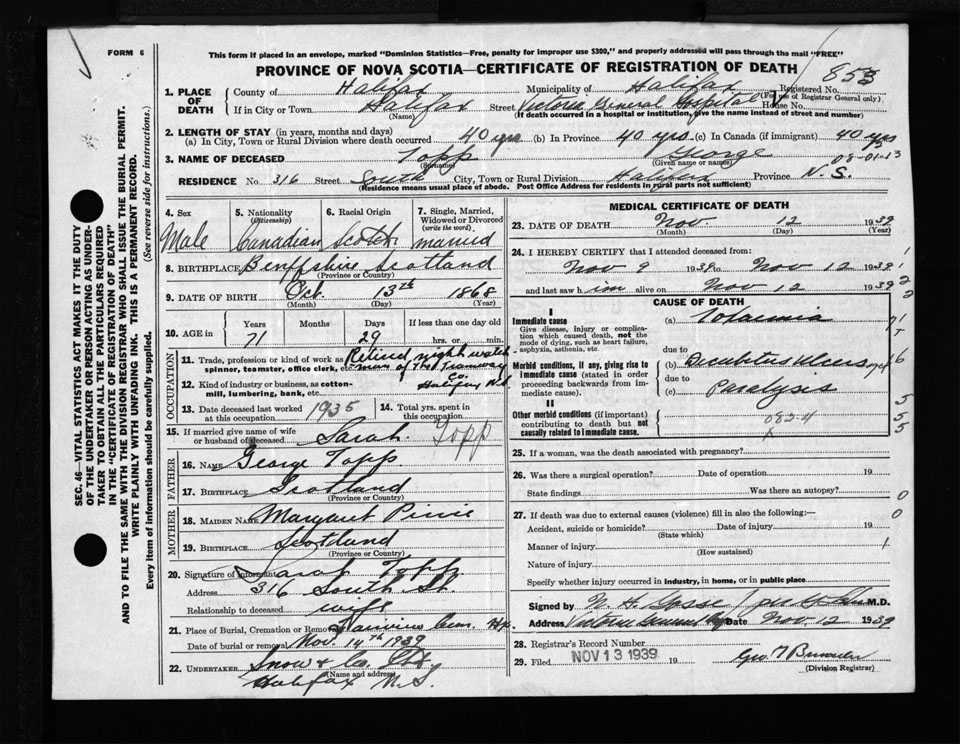 FORM 6
This form if placed in an envelope, marked "Dominion Statistics—Free, penalty for improper use $300," and properly addressed will pass through the mail "FREE"
PROVINCE OF NOVA SCOTIA—CERTIFICATE OF REGISTRATION OF DEATH
853
1. PLACE OF DEATH
County of Halifax Municipality of Halifax Registered No.
(For use of Registrar General only)
If in City or Town Halifax Street Victoria General Hospital House No.
(Name) (If death occurred in a hospital or institution, give the name instead of street and number)
2. LENGTH OF STAY (in years, months and days)
(a) In City, Town or Rural Division where death occurred 40 yrs (b) In Province 40 yrs. (c) In Canada (if immigrant) 40 yrs
3. NAME OF DECEASED Topp George
(Surname) (Given name or names)
08-01-13
RESIDENCE No. 316 Street South City, Town or Rural Division Halifax Province N. S.
(Residence means usual place of abode. Post Office Address for residents in rural parts not sufficient)
4. Sex 5. Nationality (Citizenship) 6. Racial Origin 7. Single, Married, Widowed or Divorced (write the word)
Male Canadian Scotch married
8. BIRTHPLACE Banffshire Scotland
(Province or Country)
9. DATE OF BIRTH Oct. 13th 1868
(Month) (Day) (Year)
10. AGE in Years Months Days If less than one day
71 29 hrs. or min.
OCCUPATION
11. Trade, profession or kind of work as spinner, teamster, office clerk, etc. Retired night watch
man of the Tramway Co.
12. Kind of industry or business, as cotton-mill, lumbering, bank, etc. Halifax N.S.
13. Date deceased last worked at this occupation 1935 14. Total yrs. spent in this occupation
15. If married give name of wife or husband of deceased Sarah Topp
FATHER
16. NAME George Topp
17. BIRTHPLACE Scotland
(Province or Country)
MOTHER
18. MAIDEN NAME Margaret Pirie
19. BIRTHPLACE Scotland
(Province or Country)
20. Signature of informant Sarah Topp
Address 316 South St.
Relationship to deceased wife
21. Place of Burial, Cremation or Removal Fairview Cem. Hx.
Date of burial or removal Nov. 14th 1939
22. UNDERTAKER Snow & Co. Ltd
(Name and address)
Halifax N.S.
MEDICAL CERTIFICATE OF DEATH
23. DATE OF DEATH Nov. 12 1939
(Month) (Day) (Year)
24. I HEREBY CERTIFY that I attended deceased from:
Nov 9 1939 to Nov 12 1939
and last saw him alive on Nov 12 1939
CAUSE OF DEATH
I
Immediate cause
Give disease, injury or complication which caused death, not the mode of dying, such as heart failure, asphyxia, asthenia, etc.
(a) Toxaemia
due to
Morbid conditions, if any, giving rise to immediate cause (stated in order proceeding backwards from immediate cause).
(b) Decubitus Ulcers
due to
(c) Paralysis
II
Other morbid conditions (if important) contributing to death but not causally related to immediate cause.
082-4
25. If a woman, was the death associated with pregnancy?
26. Was there a surgical operation? Date of operation 19
State findings Was there an autopsy?
27. If death was due to external causes (violence) fill in also the following:—
Accident, suicide or homicide? Date of injury 19
(State which)
Manner of injury
(How sustained)
Nature of injury
Specify whether injury occurred in industry, in home, or in public place
Signed by N. H. Gosse M.D.
Address Victoria General Date Nov. 12 1939
28. Registrar's Record Number
29. Filed NOV 13 1939 19
(Division Registrar)
SEC. 46—VITAL STATISTICS ACT MAKES IT THE DUTY
OF THE UNDERTAKER OR PERSON ACTING AS UNDER-
TAKER TO OBTAIN ALL THE PARTICULARS REQUIRED
IN THE "CERTIFICATE OF REGISTRATION OF DEATH"
AND TO FILE THE SAME WITH THE DIVISION REGISTRAR WHO SHALL ISSUE THE BURIAL PERMIT.
WRITE PLAINLY WITH UNFADING INK. THIS IS A PERMANENT RECORD.
Every item of information should be carefully supplied. (See reverse side for instructions.)